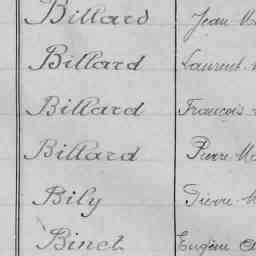 Billard Jean
Billard Laurent
Billard François
Billard Pierre
Bily Pierre
Binet Eugène